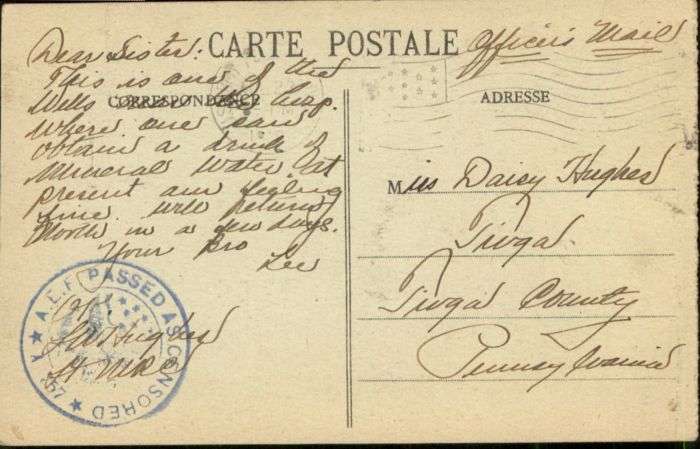 CARTE POSTALE
Officer's Mail
CORRESPONDANCE
ADRESSE
Dear Sister:
This is one of the
Wells
where one can
obtain a drink of
Mineral Water. At
present am feeling
fine. will return
North in a few days.
Your Bro
Lee
Miss Daisy Hughes
Tioga
Tioga County
Pennsylvania
A.E.F. PASSED AS CENSORED
Hughes